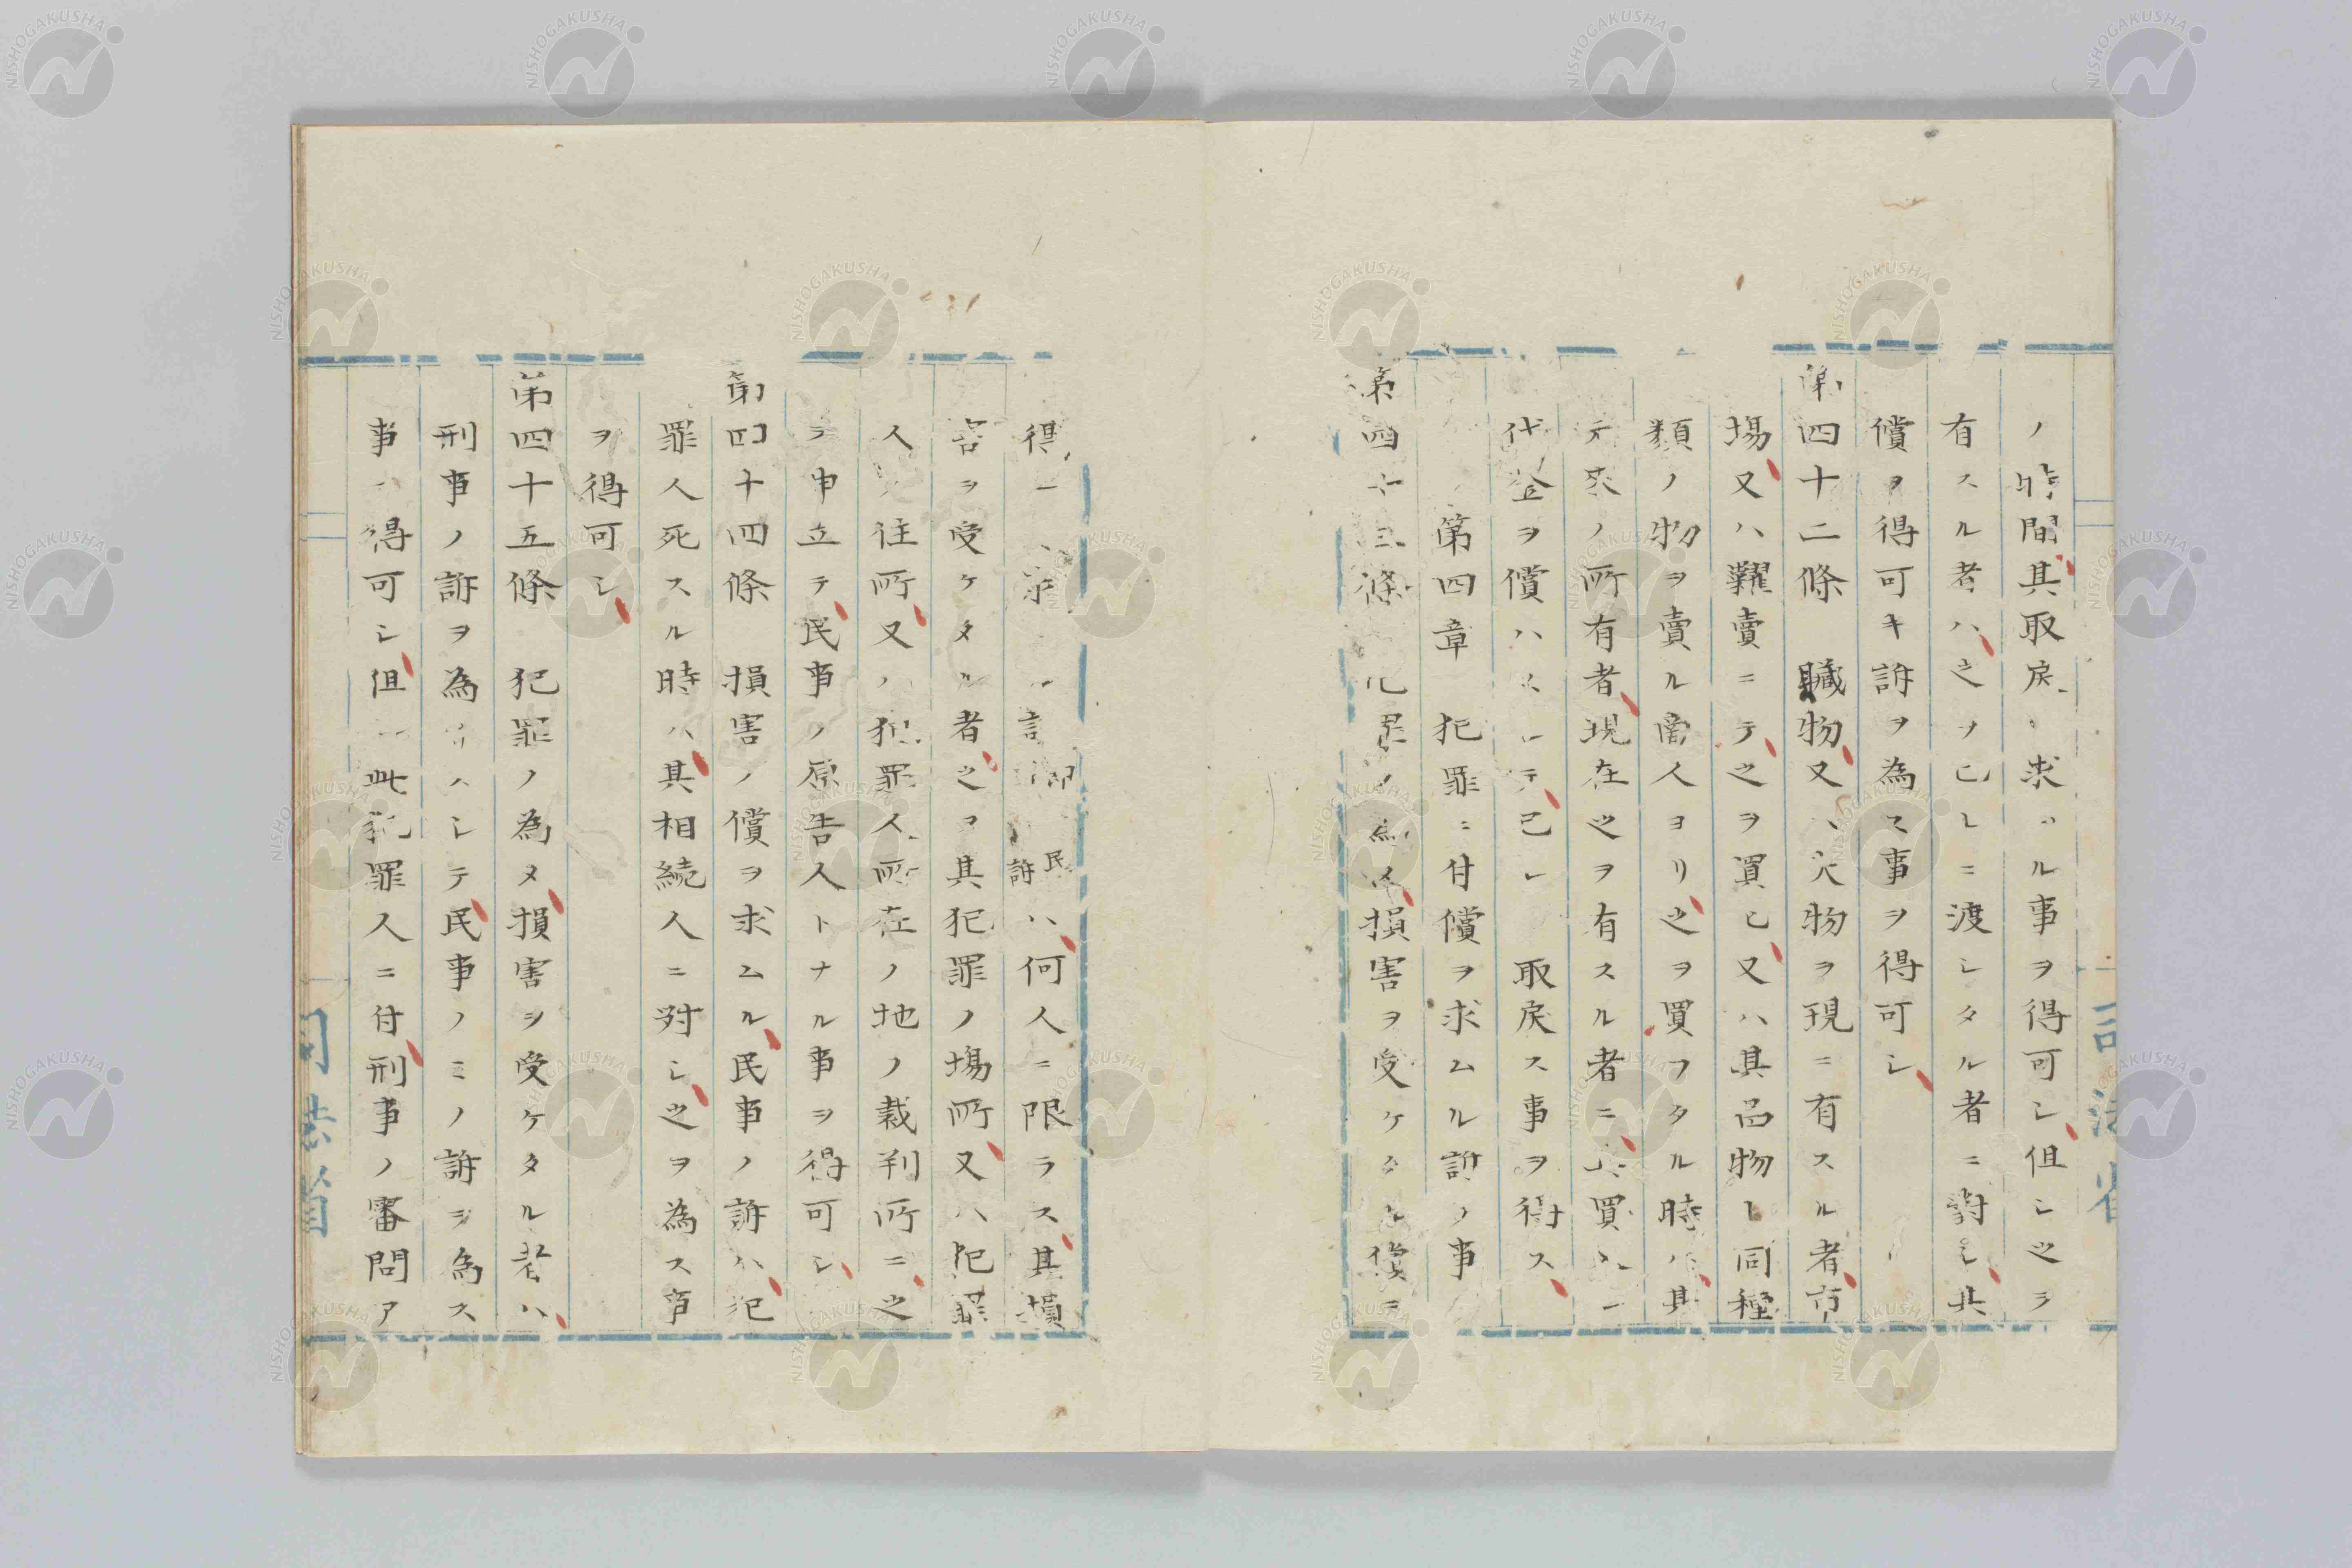 ノ時間其取戻ヲ求ムル事ヲ得可シ但シ之ヲ
有スル者ハ之ヲ己レニ渡シタル者ニ對シ其
償ヲ得可キ訴ヲ為ス事ヲ得可シ
第四十二條　贓物又ハ穴物ヲ現ニ有スル者市
場又ハ糶賣ニテ之ヲ買ヒ又ハ其品物ト同種
類ノ物ヲ賣ル商人ヨリ之ヲ買フタル時ハ其
所有者現在之ヲ有スル者ニ其買
代金ヲ償ハスシテ己レ取戻ス事ヲ得ス
第四章　犯罪ニ付償ヲ求ムル訴ノ事
第四十三條　犯罪ノ為メ損害ヲ受ケタル償ニ
得　　　　訴　即民訴ハ何人ニ限ラス其損
害ヲ受ケタル者之ヲ其犯罪ノ場所又ハ犯罪
人ノ住所又ハ犯罪人所在ノ地ノ裁判所ニ之
ヲ申立テ民事ノ原告人トナル事ヲ得可シ
第四十四條　損害ノ償ヲ求ムル民事ノ訴ハ犯
罪人死スル時ハ其相続人ニ対シ之ヲ為ス事
ヲ得可シ
第四十五條　犯罪ノ為メ損害ヲ受ケタル者ハ
刑事ノ訴ヲ為サスシテ民事ノミノ訴ヲ為ス
事ヲ得可シ但シ此犯罪人ニ付刑事ノ審問ア
司法省
司法省
NISHOGAKUSHA